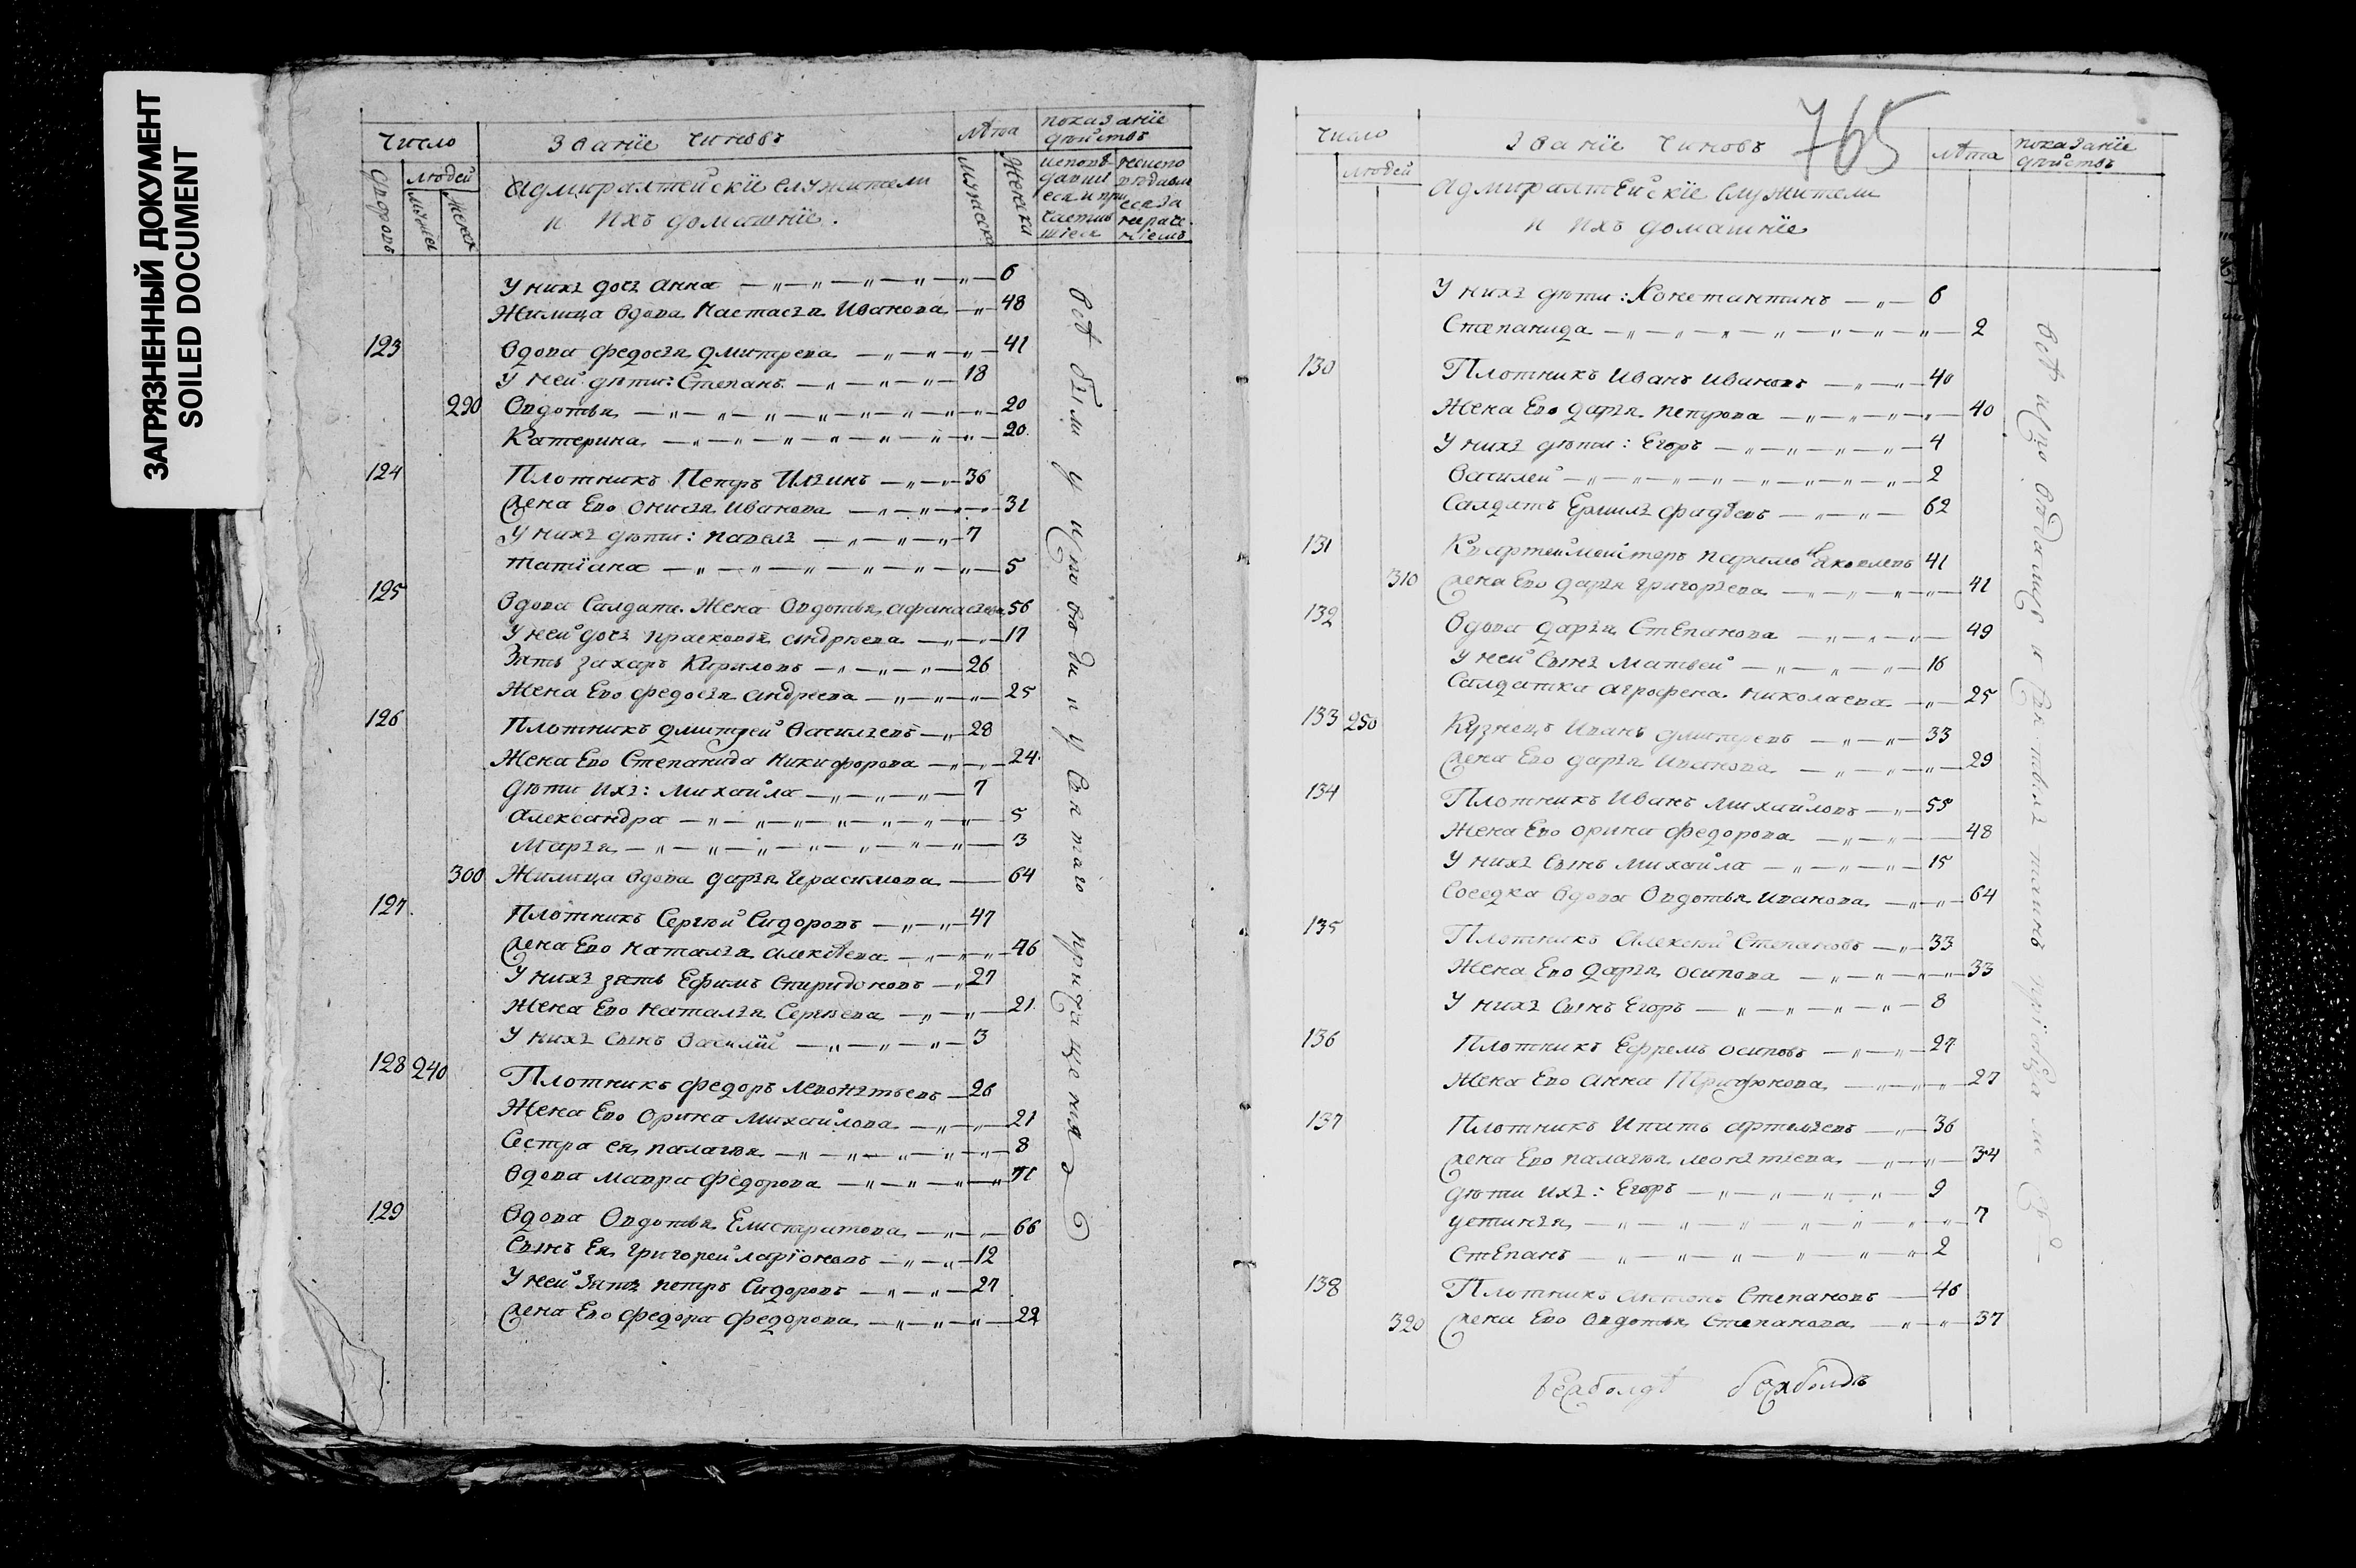 ЗАГРЯЗНЕННЫЙ ДОКУМЕНТ
SOILED DOCUMENT
Число Званїе Чиновъ Лѣта показанїе дѣйствъ
дворовъ людей мужеска женска
Адмиралтейскїе Служители
и ихъ домашнїе.
мужеска женска
У нихъ дочь анна 6
Жилица вдова Настасья Иванова 48
123 Вдова федосья дмитрева 41
У ней дѣти: Степанъ 18
290 Овдотья 20
Катерина 20
124 Плотникъ Петръ Ильинъ 36
Жена Ево онисья Иванова 31
У нихъ дѣти: павелъ 7
татїана 5
125 Вдова Салдатс. Жена Овдотья афанасьева 56
У ней дочь прасковья андрѣева 17
Зять захаръ Кириловъ 26
Жена Ево федосья андреева 25
126 Плотникъ дмитрей Васильевъ 28
Жена Ево Степанида никифорова 24
дѣти ихъ: михайла 7
александра 5
марья 3
300 Жилица вдова дарья герасимова 64
127 Плотникъ Сергѣй Сидоровъ 47
Жена Ево наталья алексѣева 46
У нихъ зять Ефимъ Спиридоновъ 27
Жена Ево наталья Сергѣева 21
У нихъ сынъ Василїй 3
128 240 Плотникъ федоръ левонтьевъ 26
Жена Ево орина михайлова 21
Сестра ея палагѣя 8
Вдова мавра федорова 71
129 Вдова Овдотья Елистратова 66
Сынъ Ея григорей ларїоновъ 12
У ней зять петръ Сидоровъ 27
Жена Ево федора федорова 22
всѣ были у исповѣди и у святаго причащения
765
Число Званїе Чиновъ Лѣта показанїе дѣйствъ
людей
адмиралтейскїе Служители
и ихъ домашнїе
У нихъ дѣти: Константинъ 6
Степанида 2
130 Плотникъ Иванъ Ивановъ 40
Жена Ево дарья петрова 40
У нихъ дѣти: Егоръ 4
Василей 2
Салдатъ Ермилъ фадѣевъ 62
131 Квартеймейстеръ Яковлевъ 41
310 Жена Ево дарья григорьева 41
132 Вдова дарья Степанова 49
У ней Сынъ матвей 16
Салдатка аграфена николаева 25
133 250 Кузнецъ Иванъ дмитревъ 33
Жена Ево дарья Иванова 29
134 Плотникъ Иванъ михайловъ 55
Жена Ево орина федорова 48
У нихъ сынъ михайла 15
Соседка вдова Овдотья Иванова 64
135 Плотникъ алексѣй Степановъ 33
Жена Ево дарья осипова 33
У нихъ сынъ Егоръ 8
136 Плотникъ Ефремъ осиповъ 27
Жена Ево анна Трифонова 27
137 Плотникъ Ипатъ артемьевъ 36
Жена Ево палагѣя леонтьева 34
дѣти ихъ: Егоръ 9
устинья 7
Степанъ 2
138 Плотникъ антонъ Степановъ 46
320 Жена Ево Овдотья Степанова 37